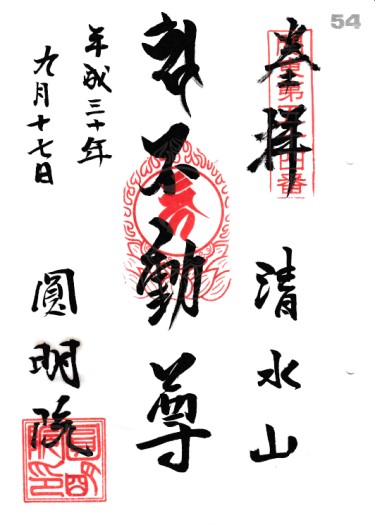 54
奉拝 清水山
関東第五十四番
不動尊
平成三十年
九月十七日
圓明院